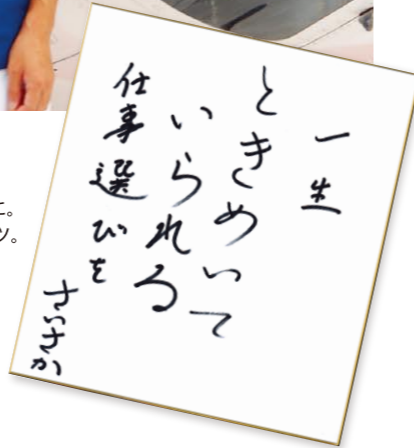 一生
ときめいて
いられる
仕事選びを
さいさか
に。
ツ。